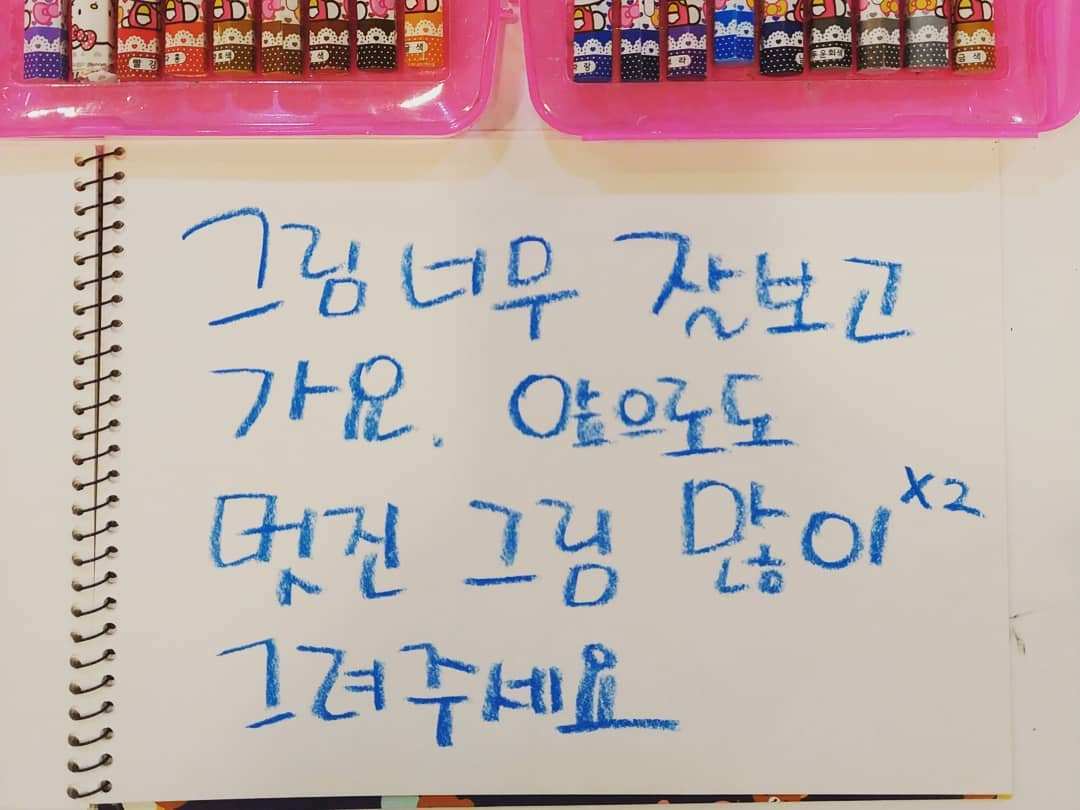 빨강
색
금색
그림 너무 잘보고
가요. 앞으로도
멋진 그림 많이 x2
그려주세요